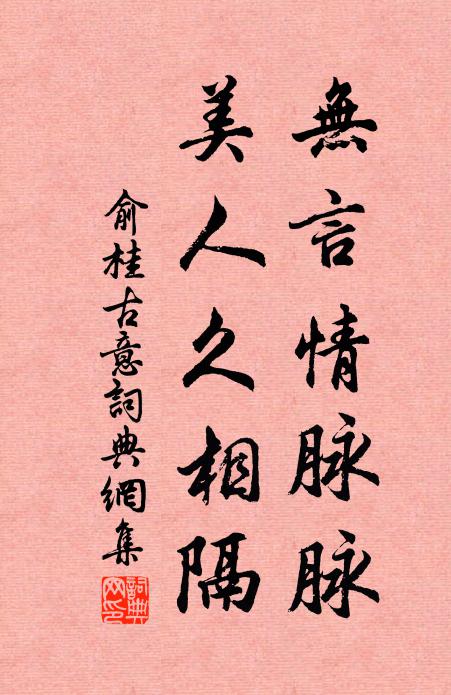 無言情脉脉
美人久相隔
俞桂古意詞典網集
詞典網印